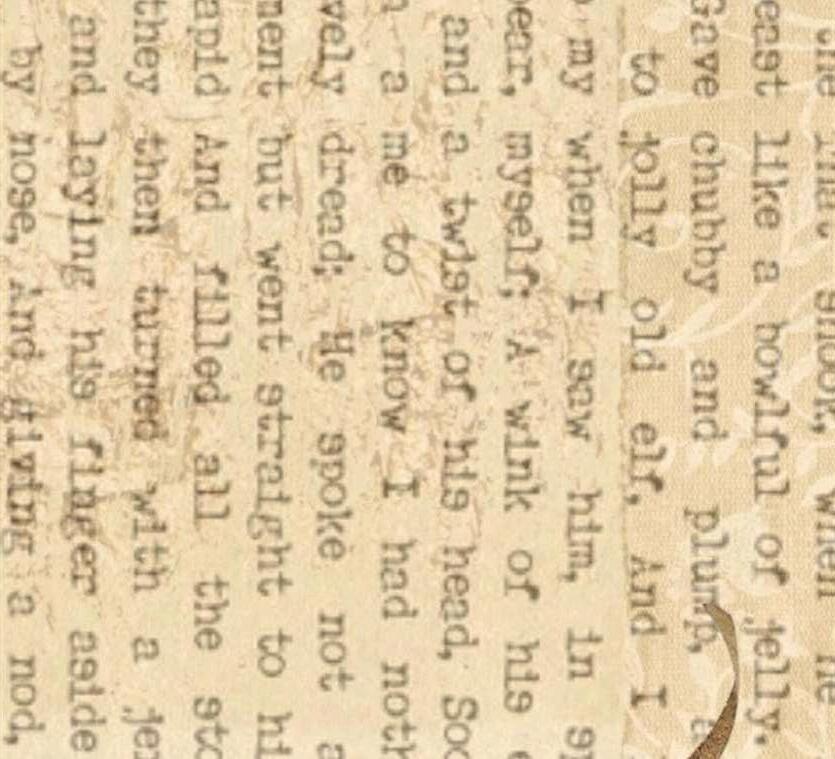 when he
east like a bowlful of jelly.
Gave chubby and plump, a
to jolly old elf, And I
my when I saw him, in sp
ear, myself; A wink of his e
and a twist of his head, Soo
a me to know I had noth
vely dread; He spoke not a
ment but went straight to hi
apid And filled all the sto
they then turned with a jer
and laying his finger aside
by nose, And giving a nod,